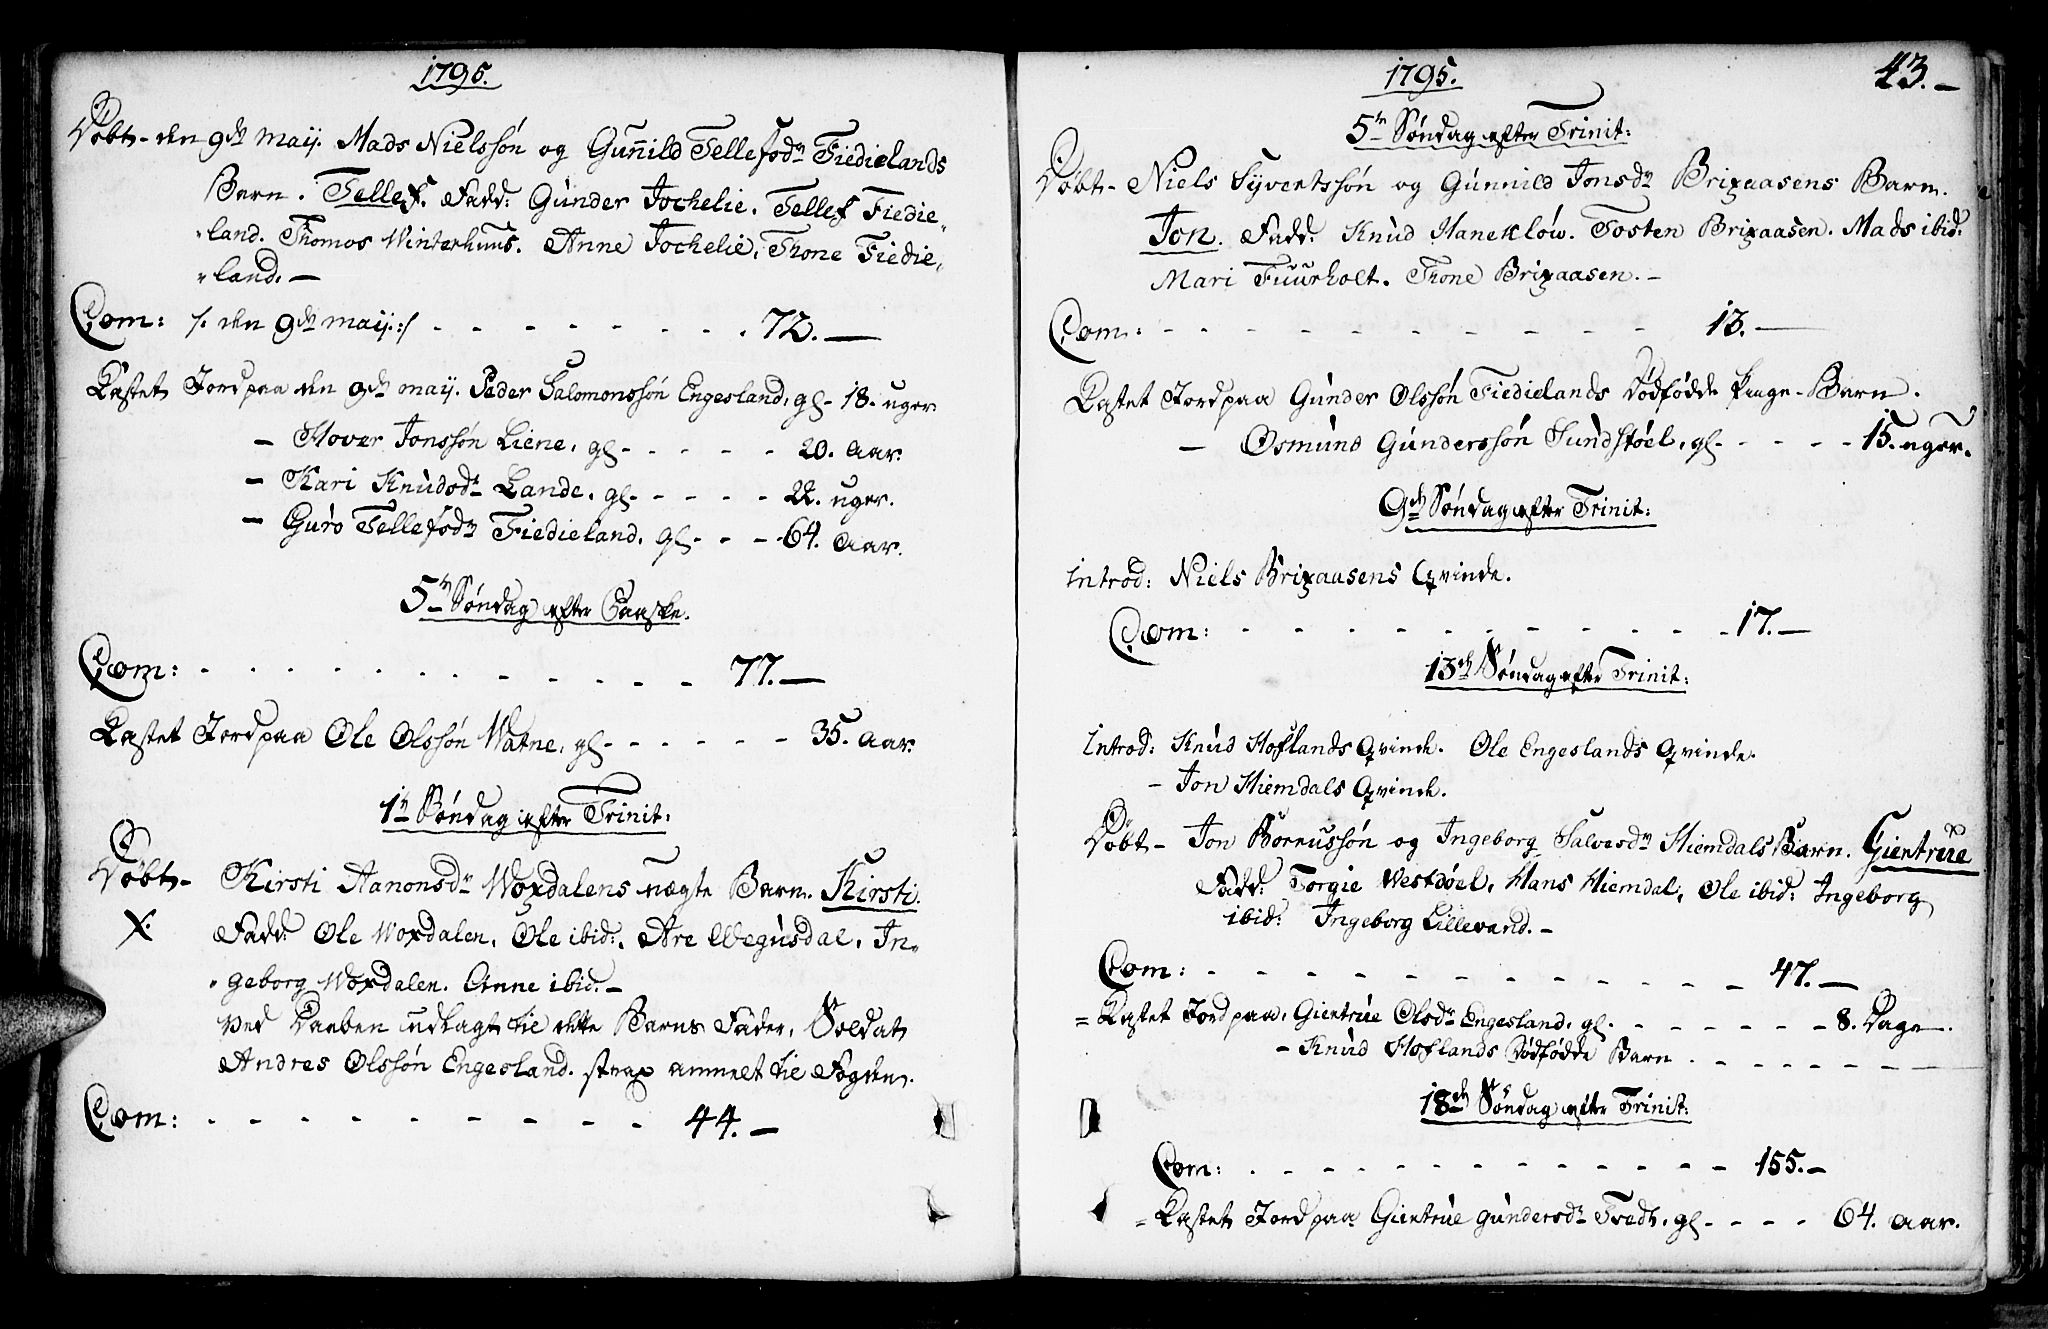 1795.
Døbt- den 9de Maij. Mads Nielssøn og Guñild Tellefsdr Fiedielands
Barn. Tellef. Fadd: Gunder Jochelie. Tellef Fiedie„
„land. Thomos Winterhuus. Anne Jochelie. Thone Fiedie„
„land. —
Com: /: den 9de maij :/ - - - - - - - - 72. —
Kastet Jord paa den 9de maij. Peder Salomonssøn Engesland, gl- 18. uger
— Hover Jonssøn Liene, gl - - - - - 20. Aar.
— Kari Knudsdr Lande, gl - - - - 22. uger.
— Guro Tellefsdr Fiedieland, gl - - - 64. Aar.
5te Søndag efter Paaske.
Com: - - - - - - - - - - - 77. —
Kastet Jord paa Ole Olssøn Watne, gl - - - - - - 35. Aar.
1te Søndag efter Trinit:
Døbt- Kirsti Aanonsdr Woxdalens uægte Barn. Kirsti.
X. Fadd: Ole Woxdalen. Ole ibid:. Are Wegusdal. In„
„geborg Woxdalen. Anne ibid. —
Ved Daaben udlagt til dette Barns Fader, Soldat
Andres Olssøn Engesland. strax anmelt til Fogden.
Com: - - - - - - - - - - 44. —
1795.
43. —
5te Søndag efter Trinit:
Døbt- Niels Syvertssøn og Gunnild Jonsdr Brixaasens Barn.
Jon. Fadd: Knud Haneklow. Tosten Brixaasen. Mads ibid:
Mari Fuurholt. Thone Brixaasen. —
Com: - - - - - - - - - - - 13. —
Kastet Jord paa Gunder Olssøn Fiedielands dødfødde Pinge-Barn.
— Osmund Gunderssøn Sundstøel, gl - - - - 15. uger.
9de Søndag efter Trinit:
Introd: Niels Brixaasens Qvinde.
Com: - - - - - - - - - - - 17. —
13de Søndag efter Trinit:
Introd: Knud Hoflands Qvinde. Ole Engeslands Qvinde.
— Jon Hiemdals Qvinde.
Døbt- Jon Børrussøn og Ingeborg Salvesdr Hiemdals Barn. Giertrue
Fadd: Torgie Westdøel, Hans Hiemdal, Ole ibid: Ingeborg
ibid: Ingeborg Lillevand. —
Com: - - - - - - - - - - - 47. —
= Kastet Jord paa, Giertrue Olsdr Engesland, gl - - - - - - 8. Dage.
— Knud Hoflands dødfødde Barn - - - - - - -
18de Søndag efter Trinit:
Com: - - - - - - - - - - - 155. —
= Kastet Jord paa Giertrue Gundersdr Tvedt, gl - - - - 64. Aar.